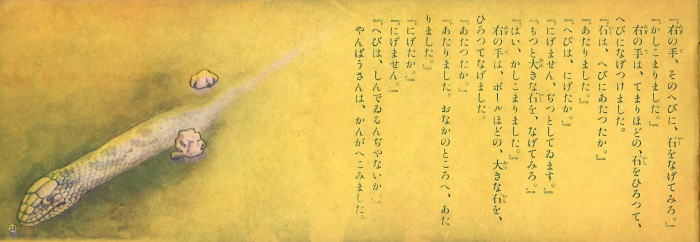 『右の手、そのへびに、石をなげてみろ。』
『かしこまりました。』
右の手は、てまりほどの、石をひろつて、
へびになげつけました。
『石は、へびにあたつたか。』
『あたりました。』
『へびは、にげたか。』
『にげません、ぢつとしてゐます。』
『もつと大きな石を、なげてみろ。』
『はい、かしこまりました。』
右の手は、ボールほどの、大きな石を、
ひろつてなげました。
『あたつたか。』
『あたりました。おなかのところへ、あた
りました。』
『にげたか。』
『にげません。』
『へびは、しんでゐるんぢやないか。』
やんばうさんは、かんがへこみました。